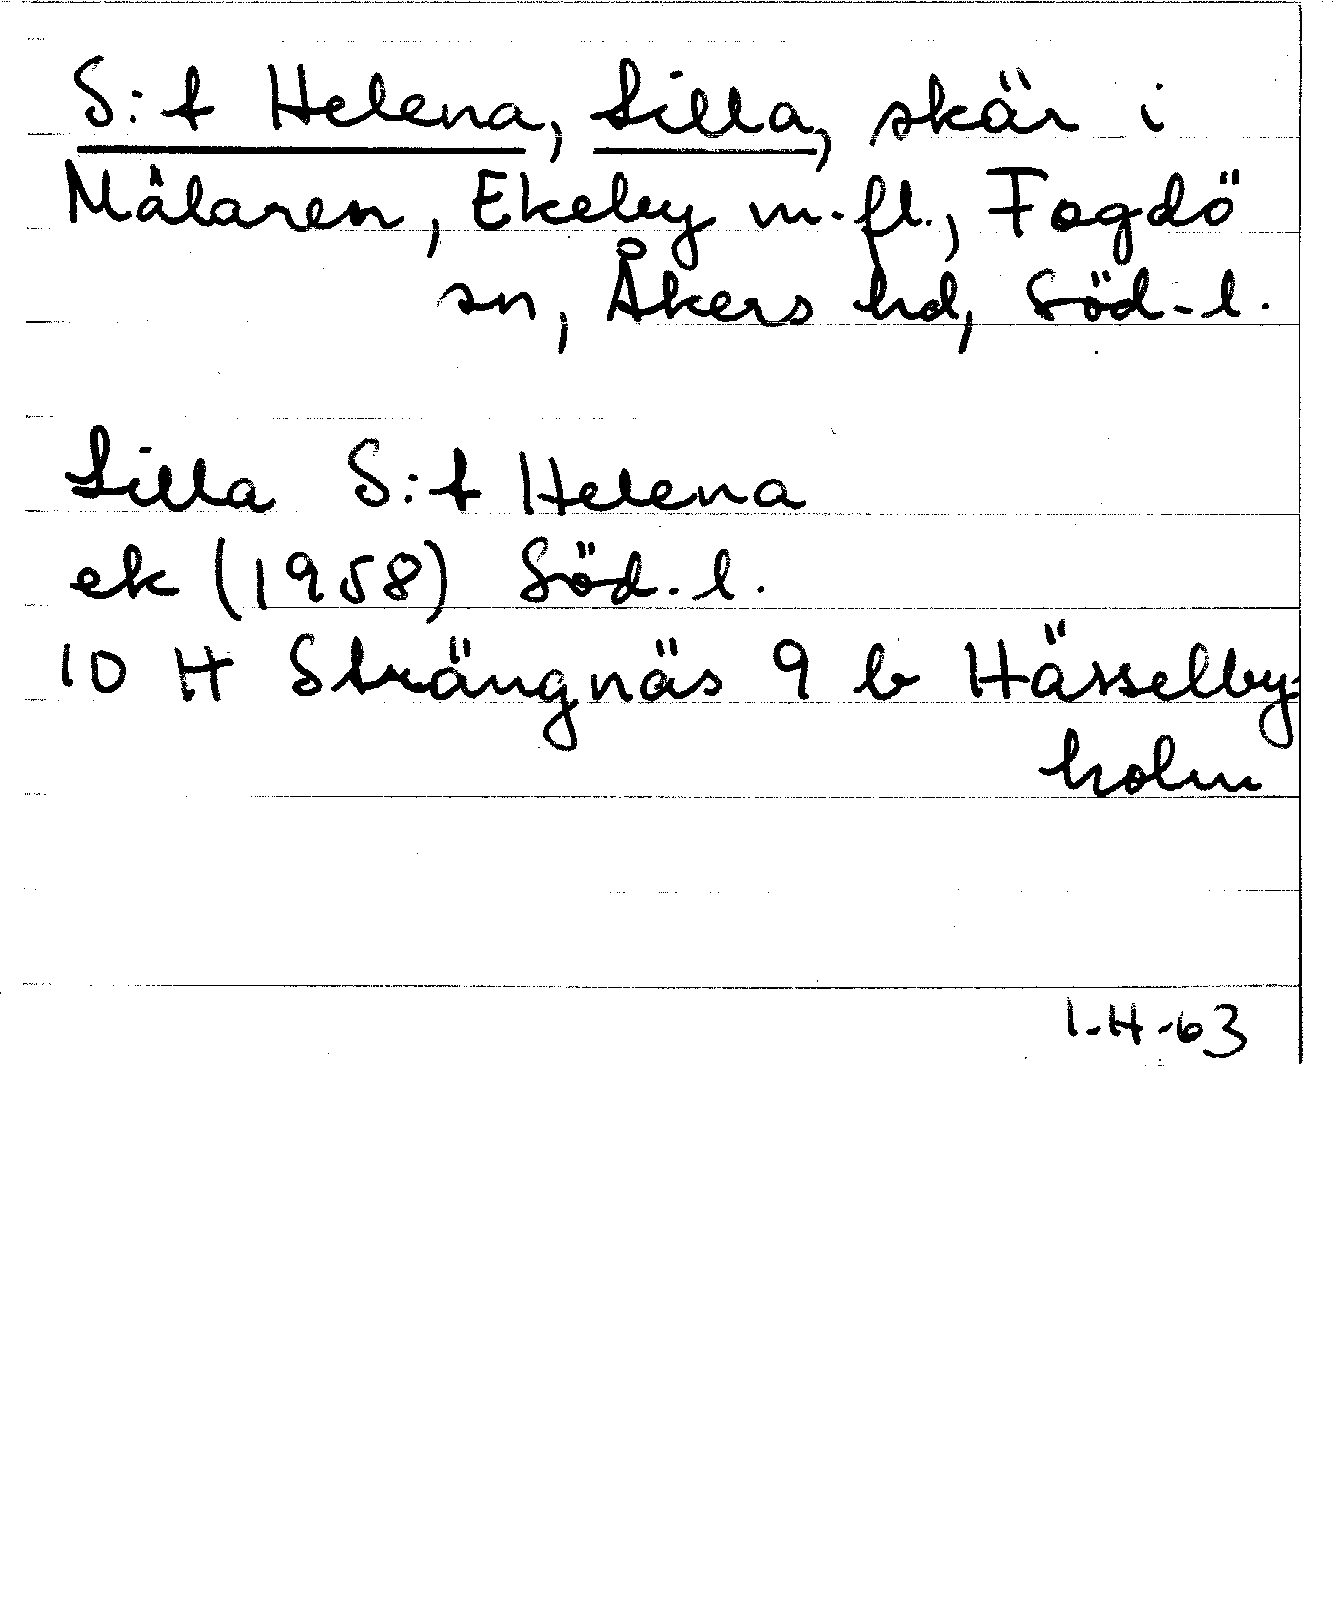 S:t Helena, Lilla, skär i
Mälaren, Ekeby m.fl., Fogdö
sn, Åkers hd, Söd-l.
Lilla S:t Helena
ek (1958) Söd.l.
10 H Strängnäs 9 b Hässelby-
holm
1-H-63